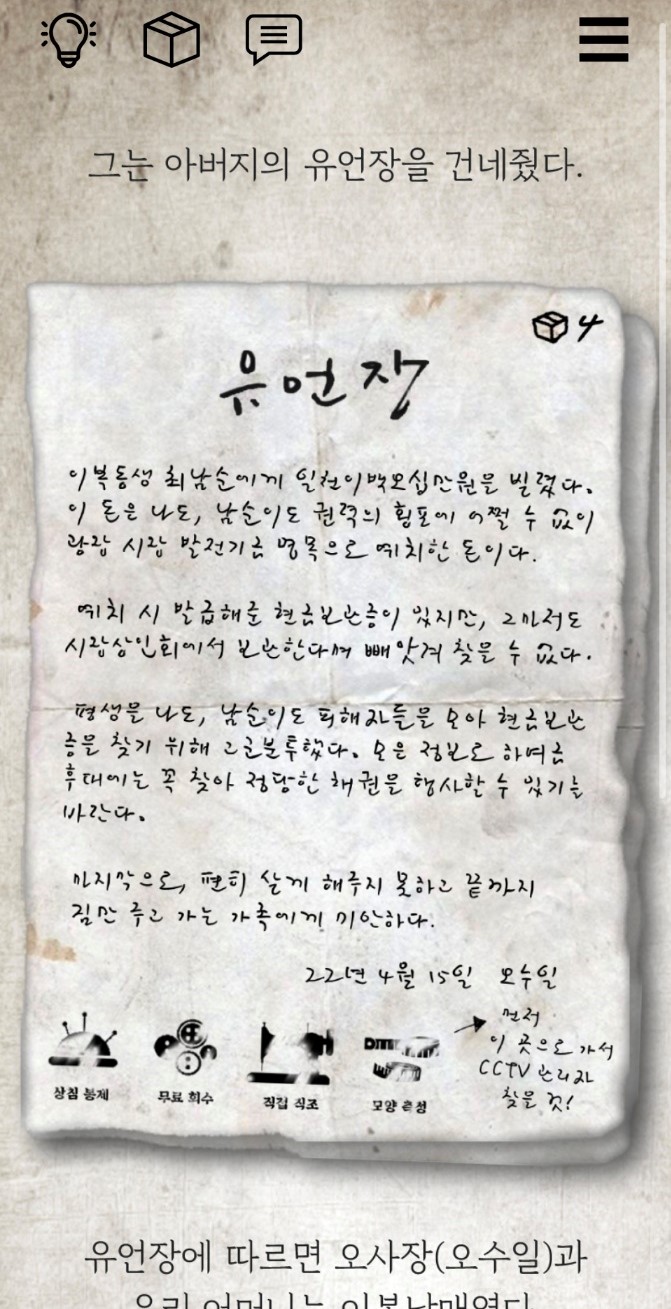 그는 아버지의 유언장을 건네줬다.
4
유언장
이복동생 최남순에게 일천이백오십만원을 빌렸다.
이 돈은 나도, 남순이도 권력의 횡포에 어쩔 수 없이
광장 시장 발전기금 명목으로 예치한 돈이다.
예치 시 발급해준 현금보관증이 있지만, 그마저도
시장상인회에서 보관한다며 빼앗겨 찾을 수 없다.
평생을 나도, 남순이도 피해자들을 모아 현금보관
증을 찾기 위해 고군분투했다. 모은 정보로 하여금
후대에는 꼭 찾아 정당한 채권을 행사할 수 있기를
바란다.
마지막으로, 편히 살게 해주지 못하고 끝까지
짐만 주고 가는 가족에게 미안하다.
22년 4월 15일 오수일
먼저
이 곳으로 가서
CCTV 관리자
찾을 것!
상침 통제
무료 회수
직접 직조
모양 측정
유언장에 따르면 오사장(오수일)과
우리 어머니는 이복남매였다.